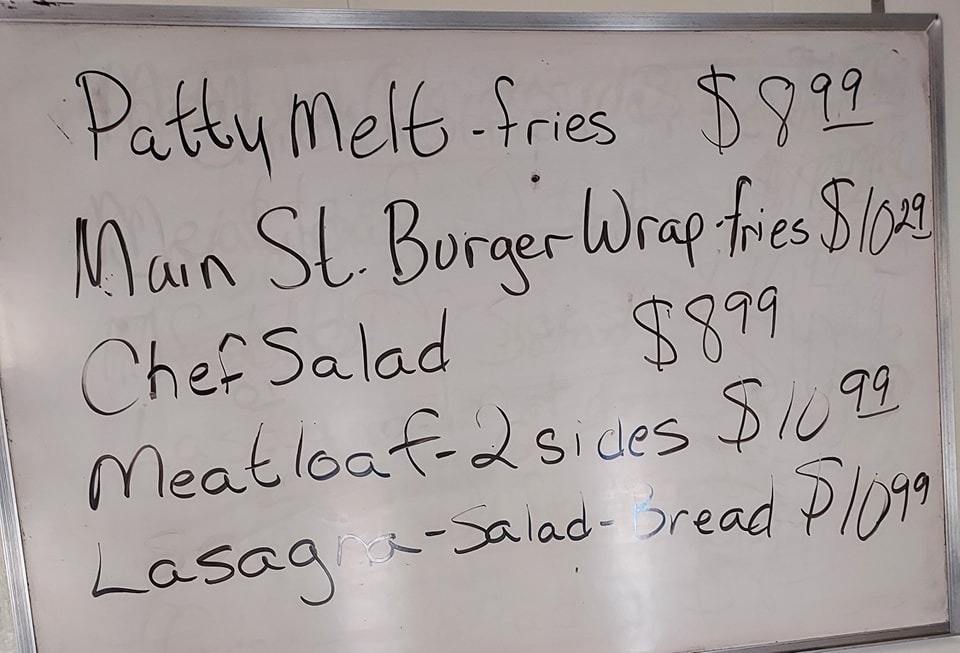 Patty Melt - fries $8.99
Main St. Burger Wrap - fries $10.29
Chef Salad $8.99
Meatloaf - 2 sides $10.99
Lasagna - Salad - Bread $10.99